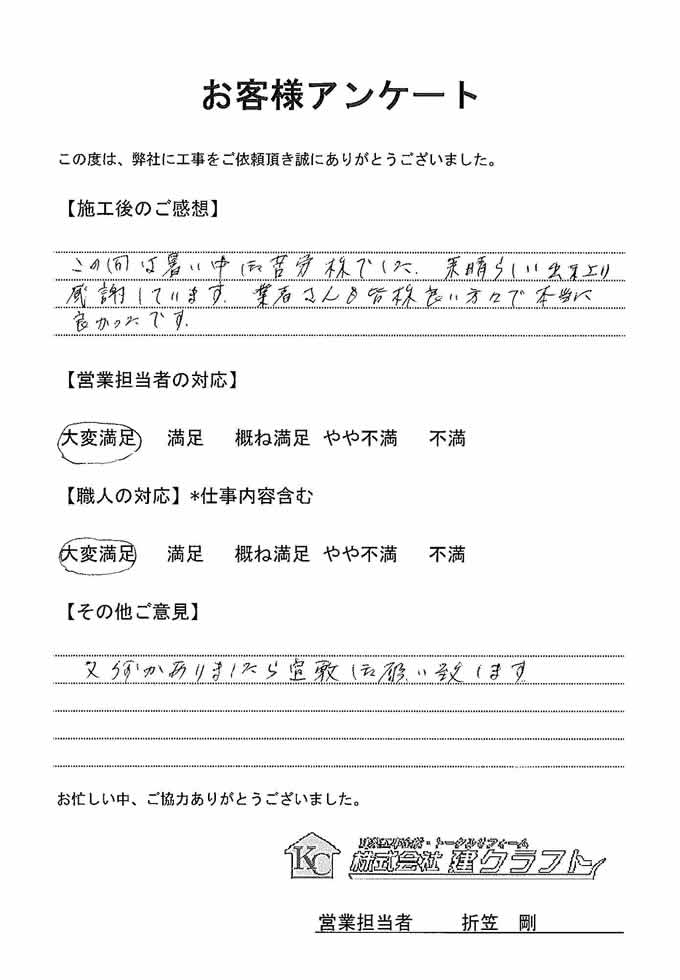 お客様アンケート
この度は、弊社に工事をご依頼頂き誠にありがとうございました。
【施工後のご感想】
この間は暑い中御苦労様でした。素晴らしい出来上り
感謝しています。業者さんも皆様良い方々で本当に
良かったです。
【営業担当者の対応】
大変満足 満足 概ね満足 やや不満 不満
【職人の対応】*仕事内容含む
大変満足 満足 概ね満足 やや不満 不満
【その他ご意見】
又何かありましたら宜敷御願い致します
お忙しい中、ご協力ありがとうございました。
KC
・トータルリフォーム
株式会社 建クラフト
営業担当者 折笠 剛